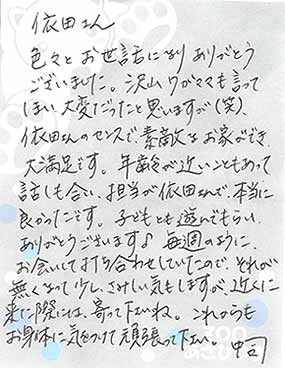 依田さん
色々とお世話になり ありがとう
ございました。沢山ワガママも言って
しまい、大変だったと思いますが(笑)、
依田さんのセンスで、素敵なお家ができ、
大満足です。年齢が近いこともあって
話しも合い、担当が依田さんで、本当に
良かったです。子どもとも遊んでもらい、
ありがとうございます♪ 毎週のように、
お会いして打ち合わせしていたので、それが
無くなって少し、さみしい気もしますが、近くに
来た際には、寄って下さいね。これからも
お身体に気をつけて頑張って下さい。中司